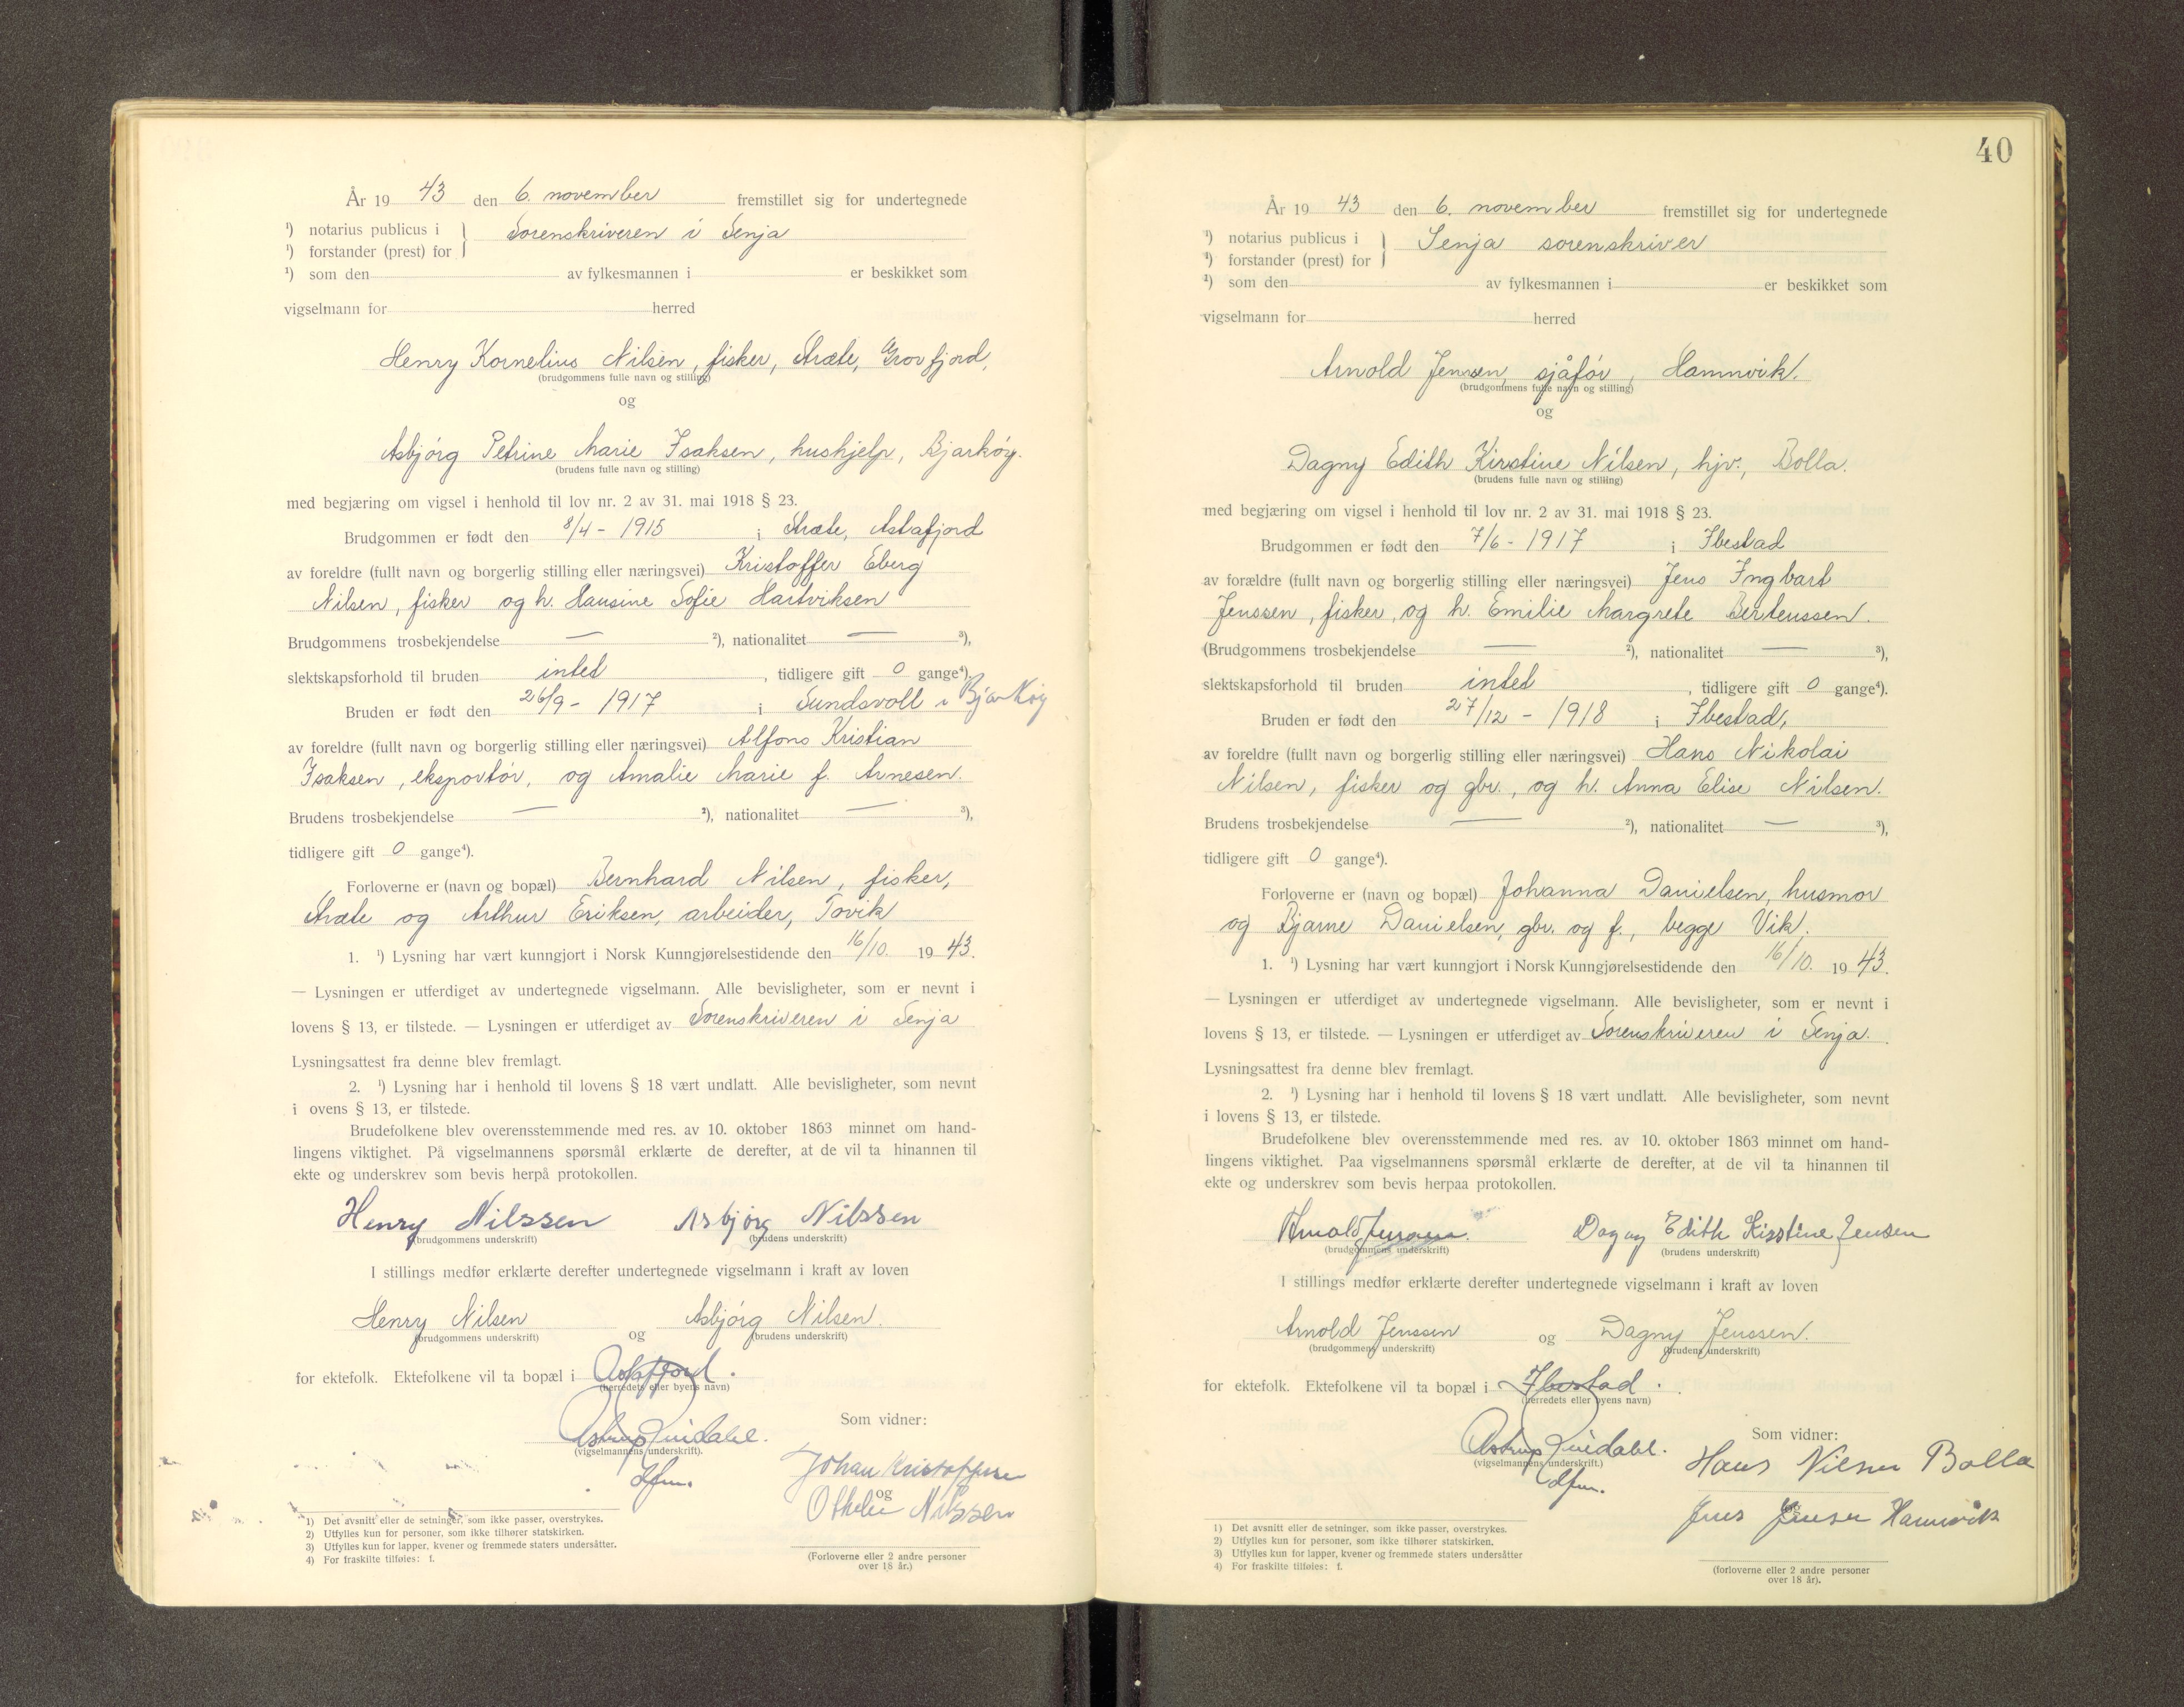 År 19 43 den 6. november fremstillet sig for undertegnede
¹) notarius publicus i } Sorenskriveren i Senja
¹) forstander (prest) for
¹) som den av fylkesmannen i er beskikket som
vigselmann for herred
Henry Kornelius Nilsen, fisker, Stræte, Grovfjord,
(brudgommens fulle navn og stilling)
og
Asbjørg Petrine Marie Isaksen, hushjelp, Bjarkøy.
(brudens fulle navn og stilling)
med begjæring om vigsel i henhold til lov nr. 2 av 31. mai 1918 § 23.
Brudgommen er født den 8/4 - 1915 i Stræte, Astafjord
av foreldre (fullt navn og borgerlig stilling eller næringsvei) Kristoffer Eberg
Nilsen, fisker og h. Hansine Sofie Hartviksen
Brudgommens trosbekjendelse — ²), nationalitet — ³),
slektskapsforhold til bruden intet , tidligere gift 0 gange⁴).
Bruden er født den 26/9 - 1917 i Sundsvoll i Bjarkøy
av foreldre (fullt navn og borgerlig stilling eller næringsvei) Alfons Kristian
Isaksen, eksportør, og Amalie Marie f. Arnesen.
Brudens trosbekjendelse — ²), nationalitet — ³),
tidligere gift 0 gange⁴).
Forloverne er (navn og bopæl) Bernhard Nilsen, fisker,
Stræte og Arthur Eriksen, arbeider, Tovik
1. ¹) Lysning har vært kunngjort i Norsk Kunngjørelsestidende den 16/10. 19 43.
— Lysningen er utferdiget av undertegnede vigselmann. Alle bevisligheter, som er nevnt i
lovens § 13, er tilstede. — Lysningen er utferdiget av Sorenskriveren i Senja
Lysningsattest fra denne blev fremlagt.
2. ¹) Lysning har i henhold til lovens § 18 vært undlatt. Alle bevisligheter, som nevnt
i ovens § 13, er tilstede.
Brudefolkene blev overensstemmende med res. av 10. oktober 1863 minnet om hand-
lingens viktighet. På vigselmannens spørsmål erklærte de derefter, at de vil ta hinannen til
ekte og underskrev som bevis herpå protokollen.
Henry Nilssen Asbjørg Nilssen
(brudgommens underskrift) (brudens underskrift)
I stillings medfør erklærte derefter undertegnede vigselmann i kraft av loven
Henry Nilsen og Asbjørg Nilsen.
(brudgommens underskrift) (brudens underskrift)
for ektefolk. Ektefolkene vil ta bopæl i Astafjord.
(herredets eller byens navn)
Astrup Lindahl.
(vigselmannens underskrift).
Som vidner:
Johan Kristoffersen
og
Nilssen
(Forloverne eller 2 andre personer
over 18 år.)
1) Det avsnitt eller de setninger, som ikke passer, overstrykes.
2) Utfylles kun for personer, som ikke tilhører statskirken.
3) Utfylles kun for lapper, kvener og fremmede staters undersåtter.
4) For fraskilte tilføies: f.
40
År 19 43 den 6. november fremstillet sig for undertegnede
¹) notarius publicus i } Senja sorenskriver
¹) forstander (prest) for
¹) som den av fylkesmannen i er beskikket som
vigselmann for herred
Arnold Jenssen, sjåfør, Hamnvik.
(brudgommens fulle navn og stilling)
og
Dagny Edith Kirstine Nilsen, hjv., Bolla.
(brudens fulle navn og stilling)
med begjæring om vigsel i henhold til lov nr. 2 av 31. mai 1918 § 23.
Brudgommen er født den 7/6 - 1917 i Ibestad
av forældre (fullt navn og borgerlig stilling eller næringsvei) Jens Ingbart
Jenssen, fisker, og h. Emilie Margrete Berteussen.
(Brudgommens trosbekjendelse — ²), nationalitet — ³),
slektskapsforhold til bruden intet , tidligere gift 0 gange⁴).
Bruden er født den 27/12 - 1918 i Ibestad,
av foreldre (fullt navn og borgerlig stilling eller næringsvei) Hans Nikolai
Nilsen, fisker og gbr., og h. Anna Elise Nilsen.
Brudens trosbekjendelse — ²), nationalitet — ³),
tidligere gift 0 gange⁴).
Forloverne er (navn og bopæl) Johanna Danielsen, husmor
og Bjarne Danielsen, gbr. og f., begge Vik.
1. ¹) Lysning har vært kunngjort i Norsk Kunngjørelsestidende den 16/10. 19 43.
— Lysningen er utferdiget av undertegnede vigselmann. Alle bevisligheter, som er nevnt i
lovens § 13, er tilstede. — Lysningen er utferdiget av Sorenskriveren i Senja.
Lysningsattest fra denne blev fremlagt.
2. ¹) Lysning har i henhold til lovens § 18 vært undlatt. Alle bevisligheter, som nevnt
i lovens § 13, er tilstede.
Brudefolkene blev overensstemmende med res. av 10. oktober 1863 minnet om hand-
lingens viktighet. Paa vigselmannens spørsmål erklærte de derefter, at de vil ta hinannen til
ekte og underskrev som bevis herpaa protokollen.
Arnold Jenssen. Dagny Edith Kisstine Jensen
(brudgommens underskrift) (brudens underskrift)
I stillings medfør erklærte derefter undertegnede vigselmann i kraft av loven
Arnold Jenssen og Dagny Jenssen.
(brudgommens underskrift) (brudens underskrift)
for ektefolk. Ektefolkene vil ta bopæl i Ibestad.
(herredets eller byens navn)
Astrup Lindahl.
(vigselmannens underskrift.)
Som vidner:
Hans Nilsen Bolla
og
Jens Jensen Hamnvik
(forloverne eller 2 andre personer
over 18 år).
1) Det avsnitt eller de setninger, som ikke passer, overstrykes.
2) Utfylles kun for personer, som ikke tilhører statskirken.
3) Utfylles kun for lapper, kvener og fremmede staters undersåtter
4) For fraskilte tilføies: f.